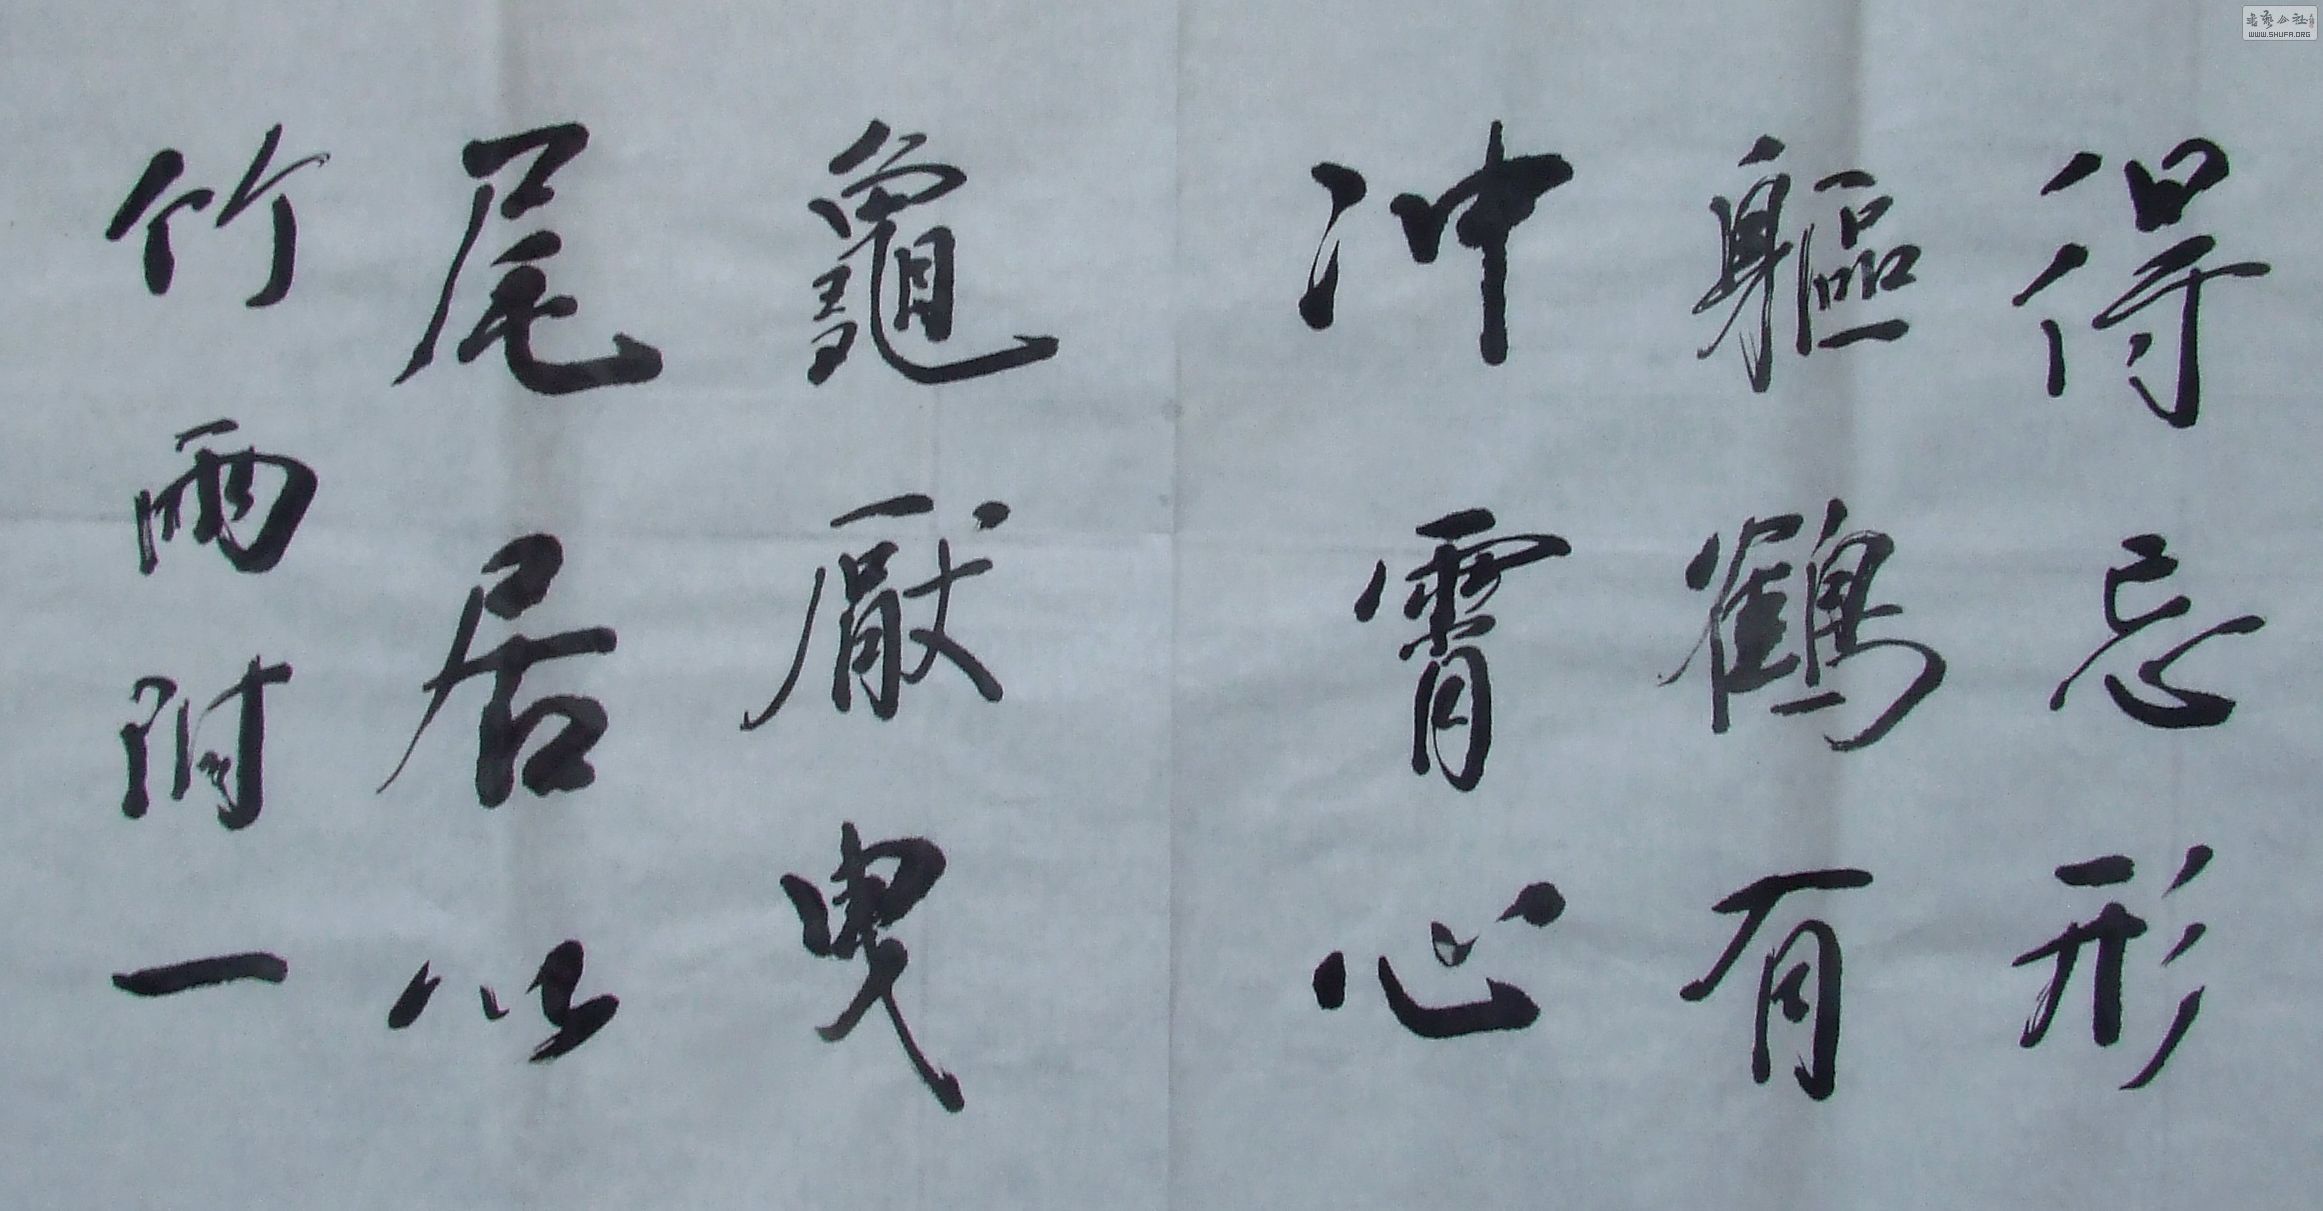 得忌形
軀鶴有
冲霄心
龜厭曳
尾居以
竹兩附一
書藝公社
WWW.SHUFA.ORG